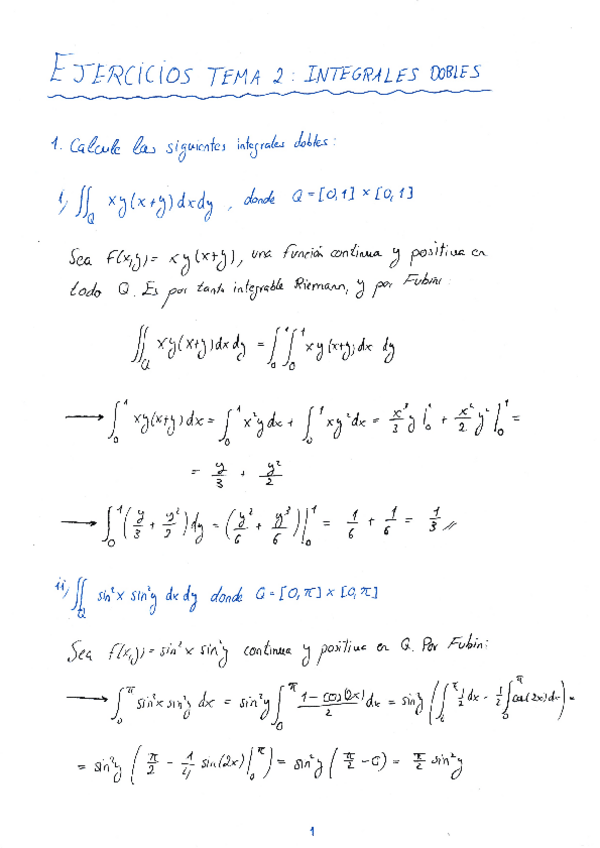 EJERCICIOS TEMA 2: INTEGRALES DOBLES
1. Calcule las siguientes integrales dobles:
i) ∬_Q xy(x+y)dxdy, donde Q=[0,1]×[0,1]
Sea F(x,y)= xy(x+y), una función continua y positiva en
todo Q. Es por tanto integrable Riemann, y por Fubini:
∬_Q xy(x+y)dxdy = ∫_0^1 ∫_0^1 xy(x+y)dx dy
⟶ ∫_0^1 xy(x+y)dx = ∫_0^1 x²y dx + ∫_0^1 xy² dx = x³/3 y |_0^1 + x²/2 y² |_0^1 =
= y/3 + y²/2
⟶ ∫_0^1 (y/3 + y²/2) dy = (y²/6 + y³/6)|_0^1 = 1/6 + 1/6 = 1/3 //
ii) ∬_Q sin²x sin²y dx dy donde Q=[0,π]×[0,π]
Sea f(x,y)= sin²x sin²y continua y positiva en Q. Por Fubini:
⟶ ∫_0^π sin²x sin²y dx = sin²y ∫_0^π (1-cos(2x))/2 dx = sin²y (∫_0^π 1/2 dx - 1/2 ∫_0^π cos(2x)dx) =
= sin²y (π/2 - 1/4 sin(2x)|_0^π) = sin²y (π/2 - 0) = π/2 sin²y
1